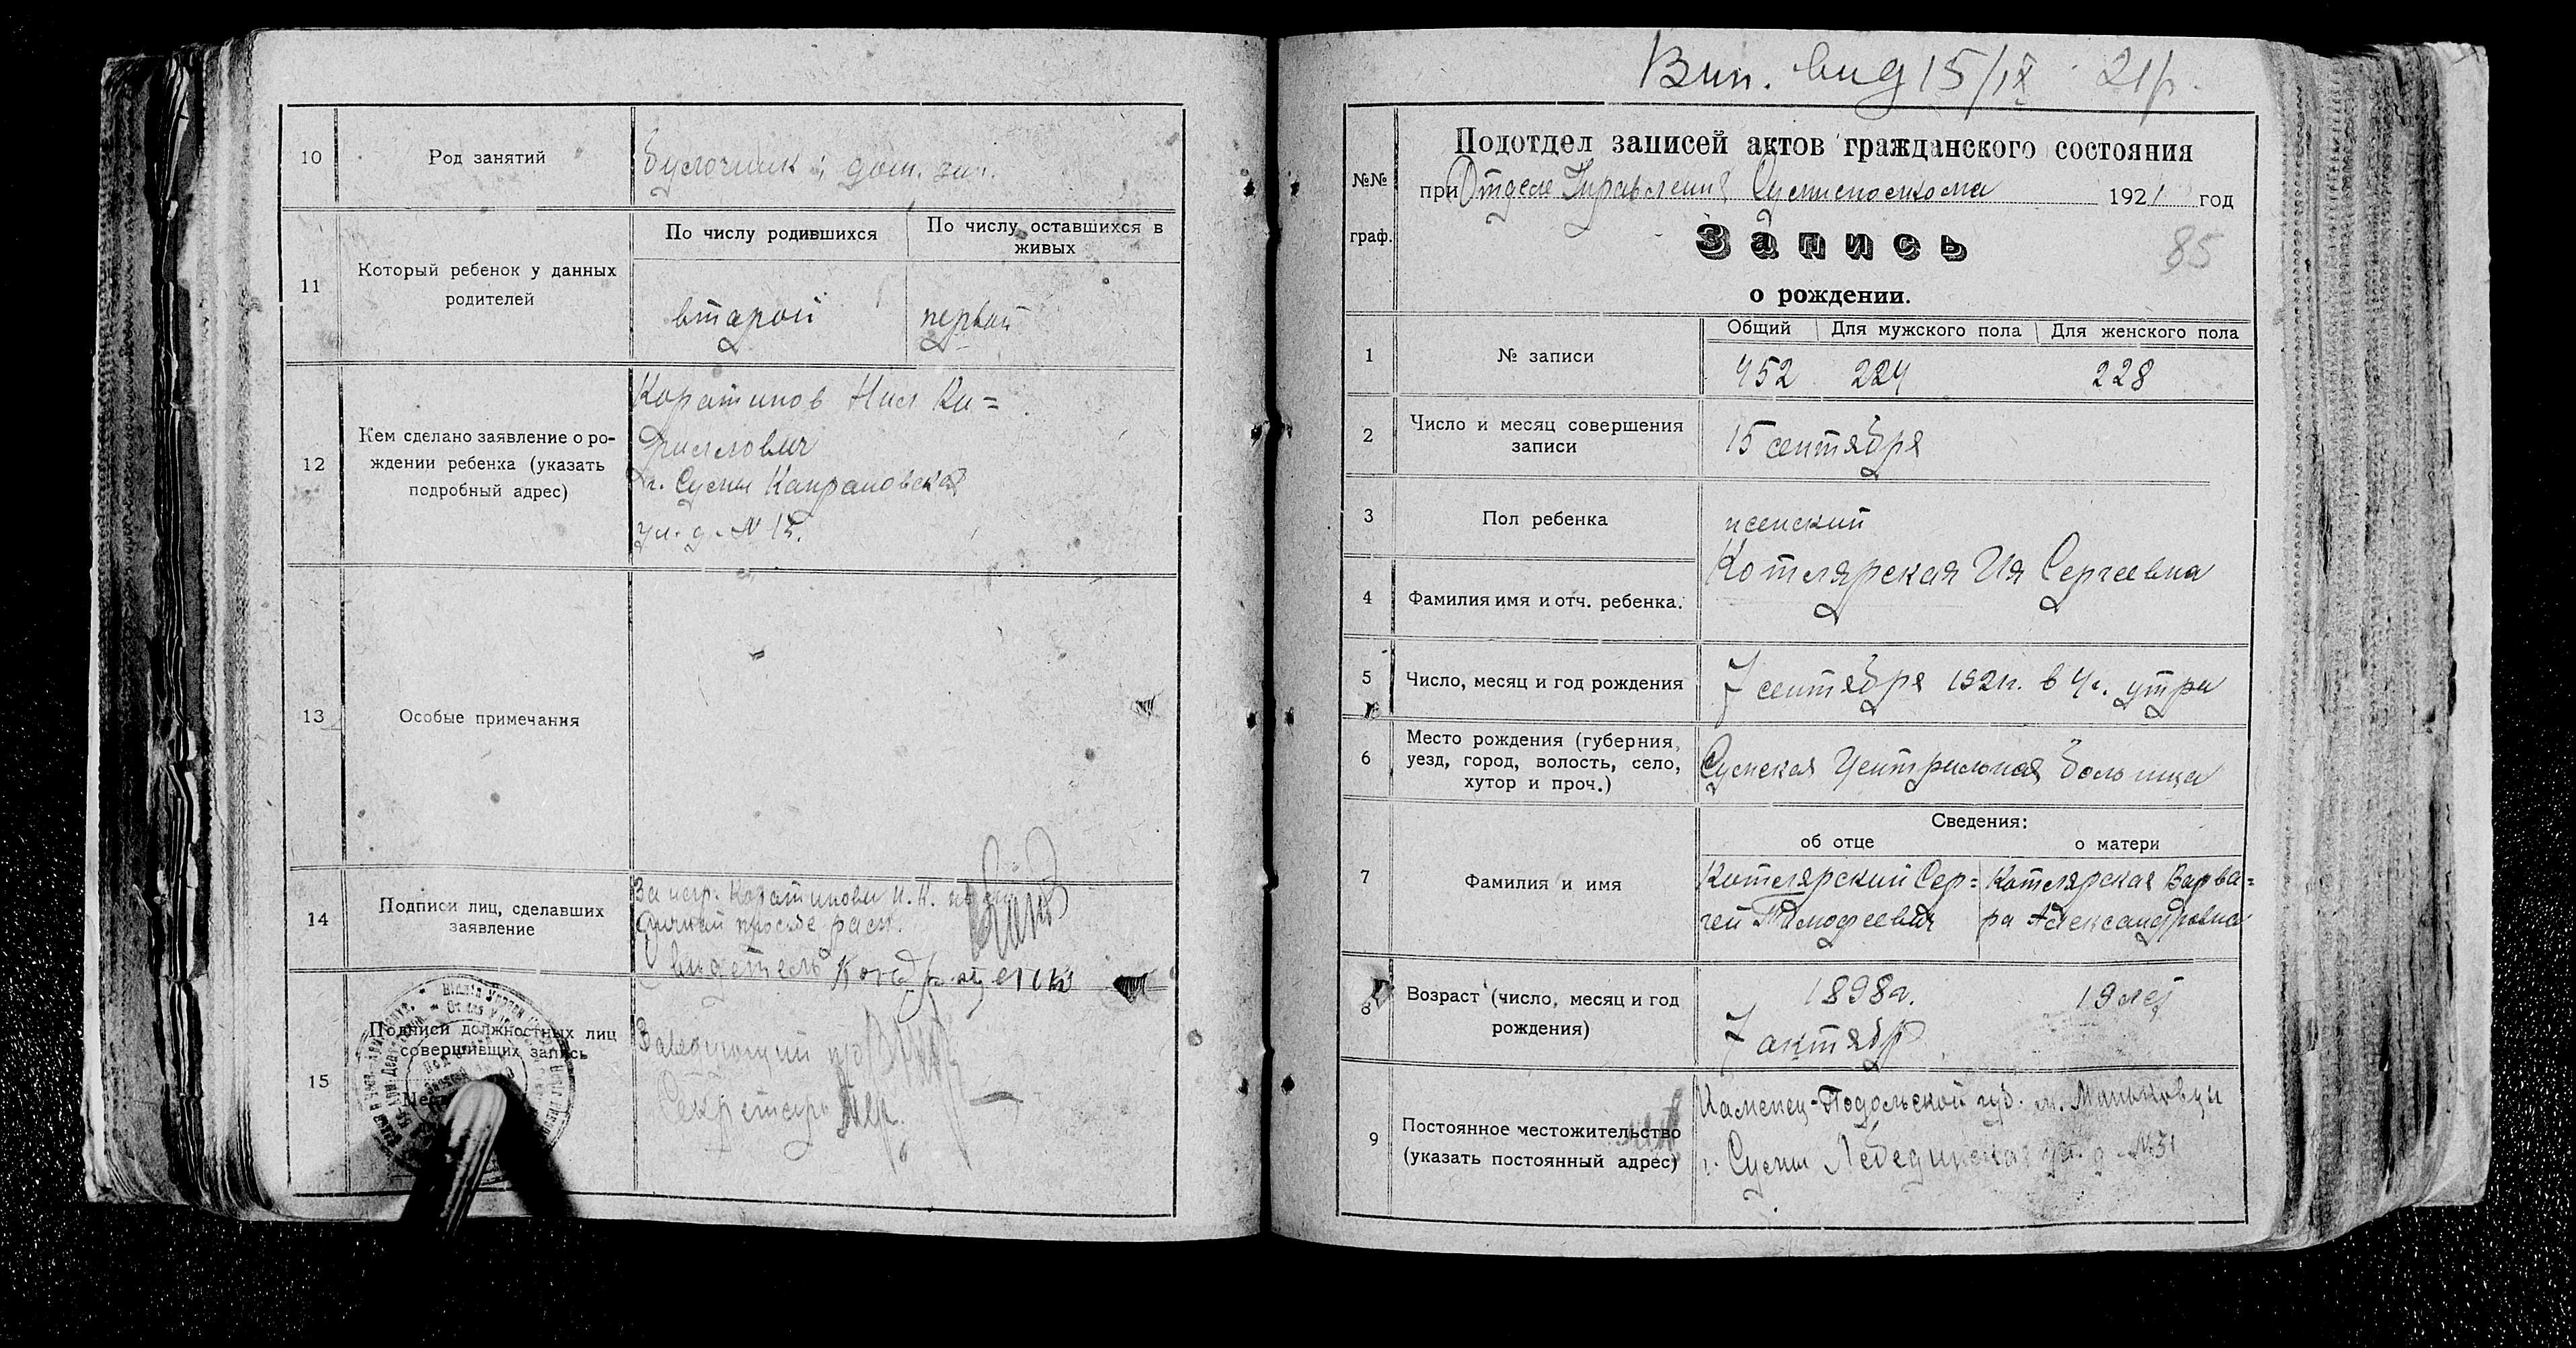 10
Род занятий
Булочник; дом. хоз.
11
Который ребенок у данных
родителей
По числу родившихся
По числу оставшихся в
живых
втарой
первый
12
Кем сделано заявление о ро-
ждении ребенка (указать
подробный адрес)
Коратинов Нил Ки=
риллович
г. Сумы
ул. д. № 15.
13
Особые примечания
14
Подписи лиц, сделавших
заявление
За негр. Коратинова Н. К. по
личной просьбе расп.
Свидетель
15
Подписи должностных лиц
совершивших запись
Заведующий
Секретарь
Вип. вид 15/IX 21р.
№№
граф.
Подотдел записей актов гражданского состояния
при Отделе Управления Сумисполкома 1921 год
Запись
85
о рождении.
1
№ записи
Общий
Для мужского пола
Для женского пола
452
224
228
2
Число и месяц совершения
записи
15 сентября
3
Пол ребенка
женский
4
Фамилия имя и отч. ребенка.
Котлярская Ия Сергеевна
5
Число, месяц и год рождения
7 сентября 1921г. в 4 ч. утра
6
Место рождения (губерния,
уезд, город, волость, село,
хутор и проч.)
Сумская Центральная больница
7
Фамилия и имя
Сведения:
об отце
о матери
Котлярский Сер=
гей Тимофеевич
Котлярская Варва=
ра Александровна
8
Возраст (число, месяц и год
рождения)
1898г.
7 актябр
19 лет
9
Постоянное местожительство
(указать постоянный адрес)
Каменец-Подольской губ. м. Маньковцы
г. Сумы Лебединская ул. д. №31